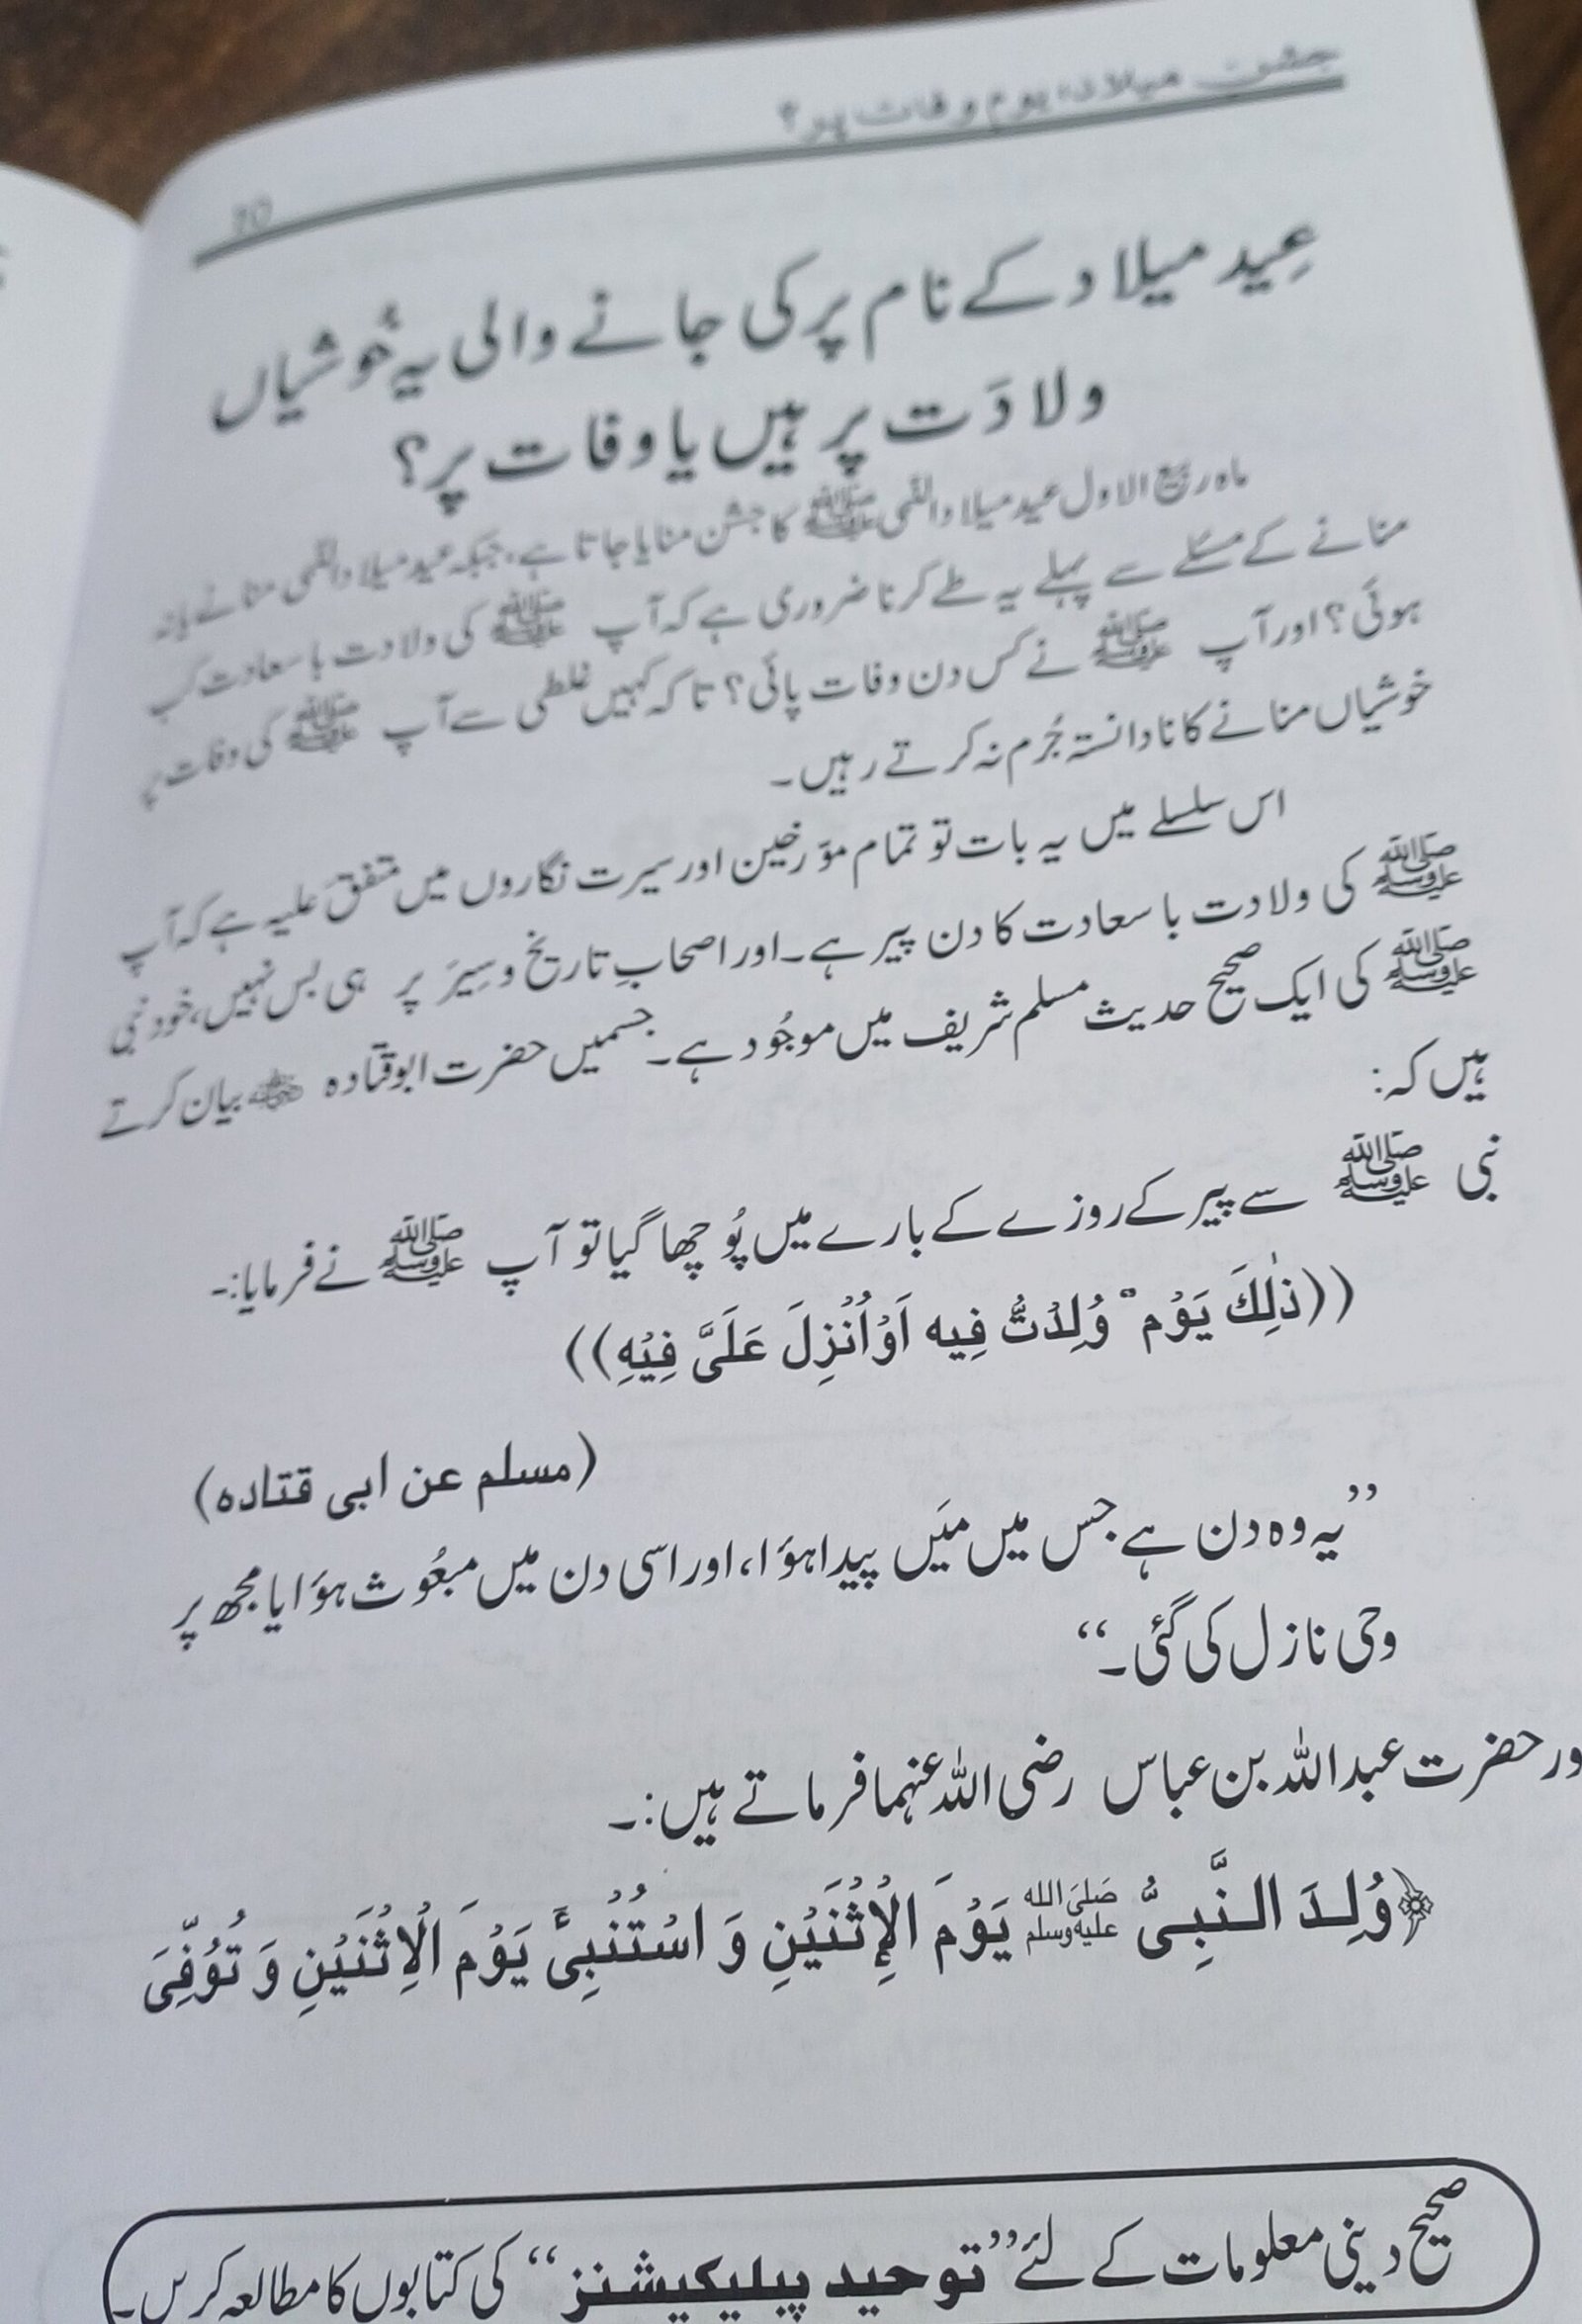 جشن میلاد، یوم وفات پر؟
10
عِید میلاد کے نام پر کی جانے والی یہ خُوشیاں
ولادَت پر ہیں یا وفات پر؟
ماہ ربیع الاول عید میلاد النبی ﷺ کا جشن منایا جاتا ہے، جبکہ عید میلاد النبی منانے یا نہ
منانے کے مسئلے سے پہلے یہ طے کرنا ضروری ہے کہ آپ ﷺ کی ولادت با سعادت کب
ہوئی؟ اور آپ ﷺ نے کس دن وفات پائی؟ تاکہ کہیں غلطی سے آپ ﷺ کی وفات پر
خوشیاں منانے کا نادانستہ جُرم نہ کرتے رہیں۔
اس سلسلے میں یہ بات تو تمام مؤرخین اور سیرت نگاروں میں متفق علیہ ہے کہ آپ
ﷺ کی ولادت با سعادت کا دن پیر ہے۔ اور اصحابِ تاریخ و سِیَر پر ہی بس نہیں، خود نبی
ﷺ کی ایک صحیح حدیث مسلم شریف میں موجُود ہے۔ جسمیں حضرت ابو قتادہ ؓ بیان کرتے
ہیں کہ:
نبی ﷺ سے پیر کے روزے کے بارے میں پُوچھا گیا تو آپ ﷺ نے فرمایا:۔
((ذٰلِکَ یَوْم ٌ وُلِدْتُّ فِیه اَوْاُنْزِلَ عَلَیَّ فِیْهِ))
(مسلم عن ابی قتادہ)
’’یہ وہ دن ہے جس میں مَیں پیدا ہؤا، اور اسی دن میں مبعُوث ہؤا یا مجھ پر
وحی نازل کی گئی۔‘‘
ور حضرت عبداللہ بن عباس رضی اللہ عنہما فرماتے ہیں:۔
﴿وُلِدَ النَّبِیُّ ﷺ یَوْمَ الْاِثْنَیْنِ وَ اسْتُنْبِیَٔ یَوْمَ الْاِثْنَیْنِ وَ تُوُفِّیَ
صحیح دینی معلومات کے لئے ’’توحید پبلیکیشنز‘‘ کی کتابوں کا مطالعہ کریں۔